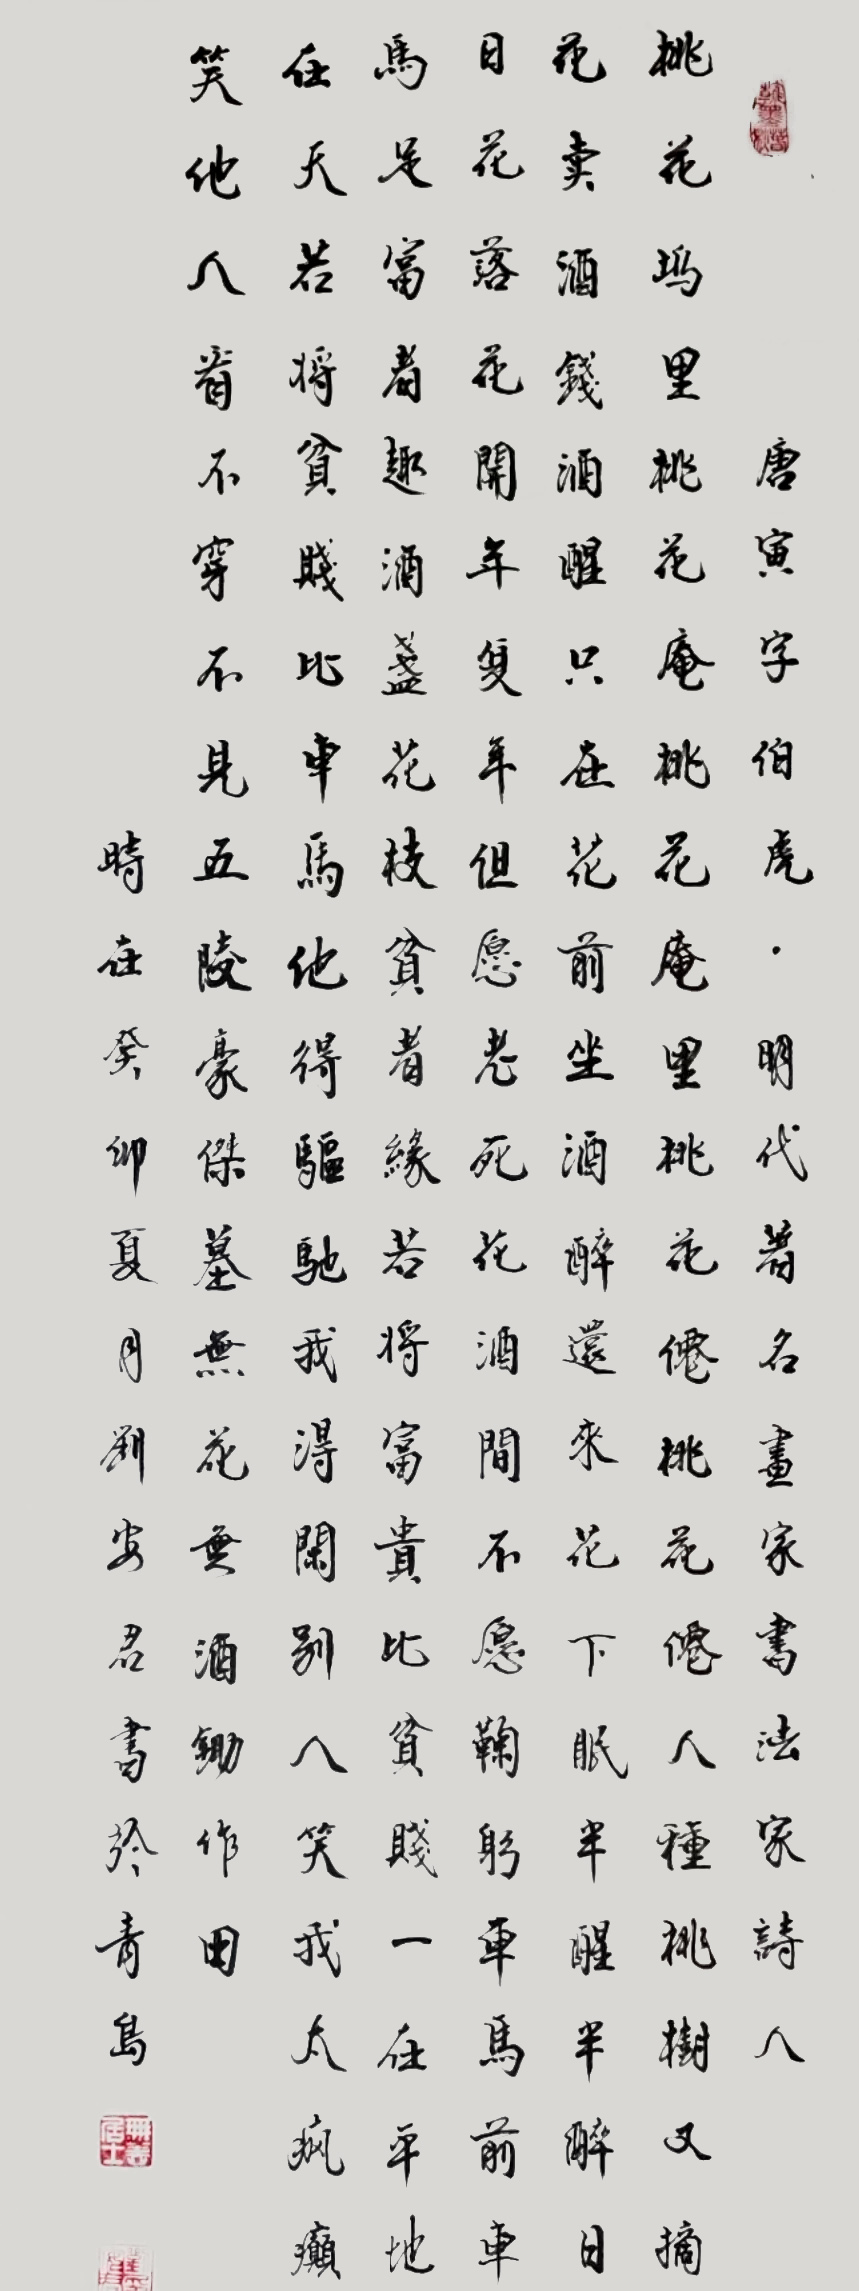 唐寅字伯虎·明代著名畫家書法家詩人
桃花塢里桃花庵桃花庵里桃花僊桃花僊人種桃樹又摘
花卖酒錢酒醒只在花前坐酒醉還來花下眠半醒半醉日
日花落花開年复年但愿老死花酒間不愿鞠躬車馬前車
馬足富者趣酒盞花枝貧者緣若将富貴比貧賤一在平地
一在天若将貧賤比車馬他得驅馳我得閑别人笑我太疯癲
笑他人看不穿不見五陵豪傑墓無花無酒鋤作田
時在癸卯夏月劉安君書於青島